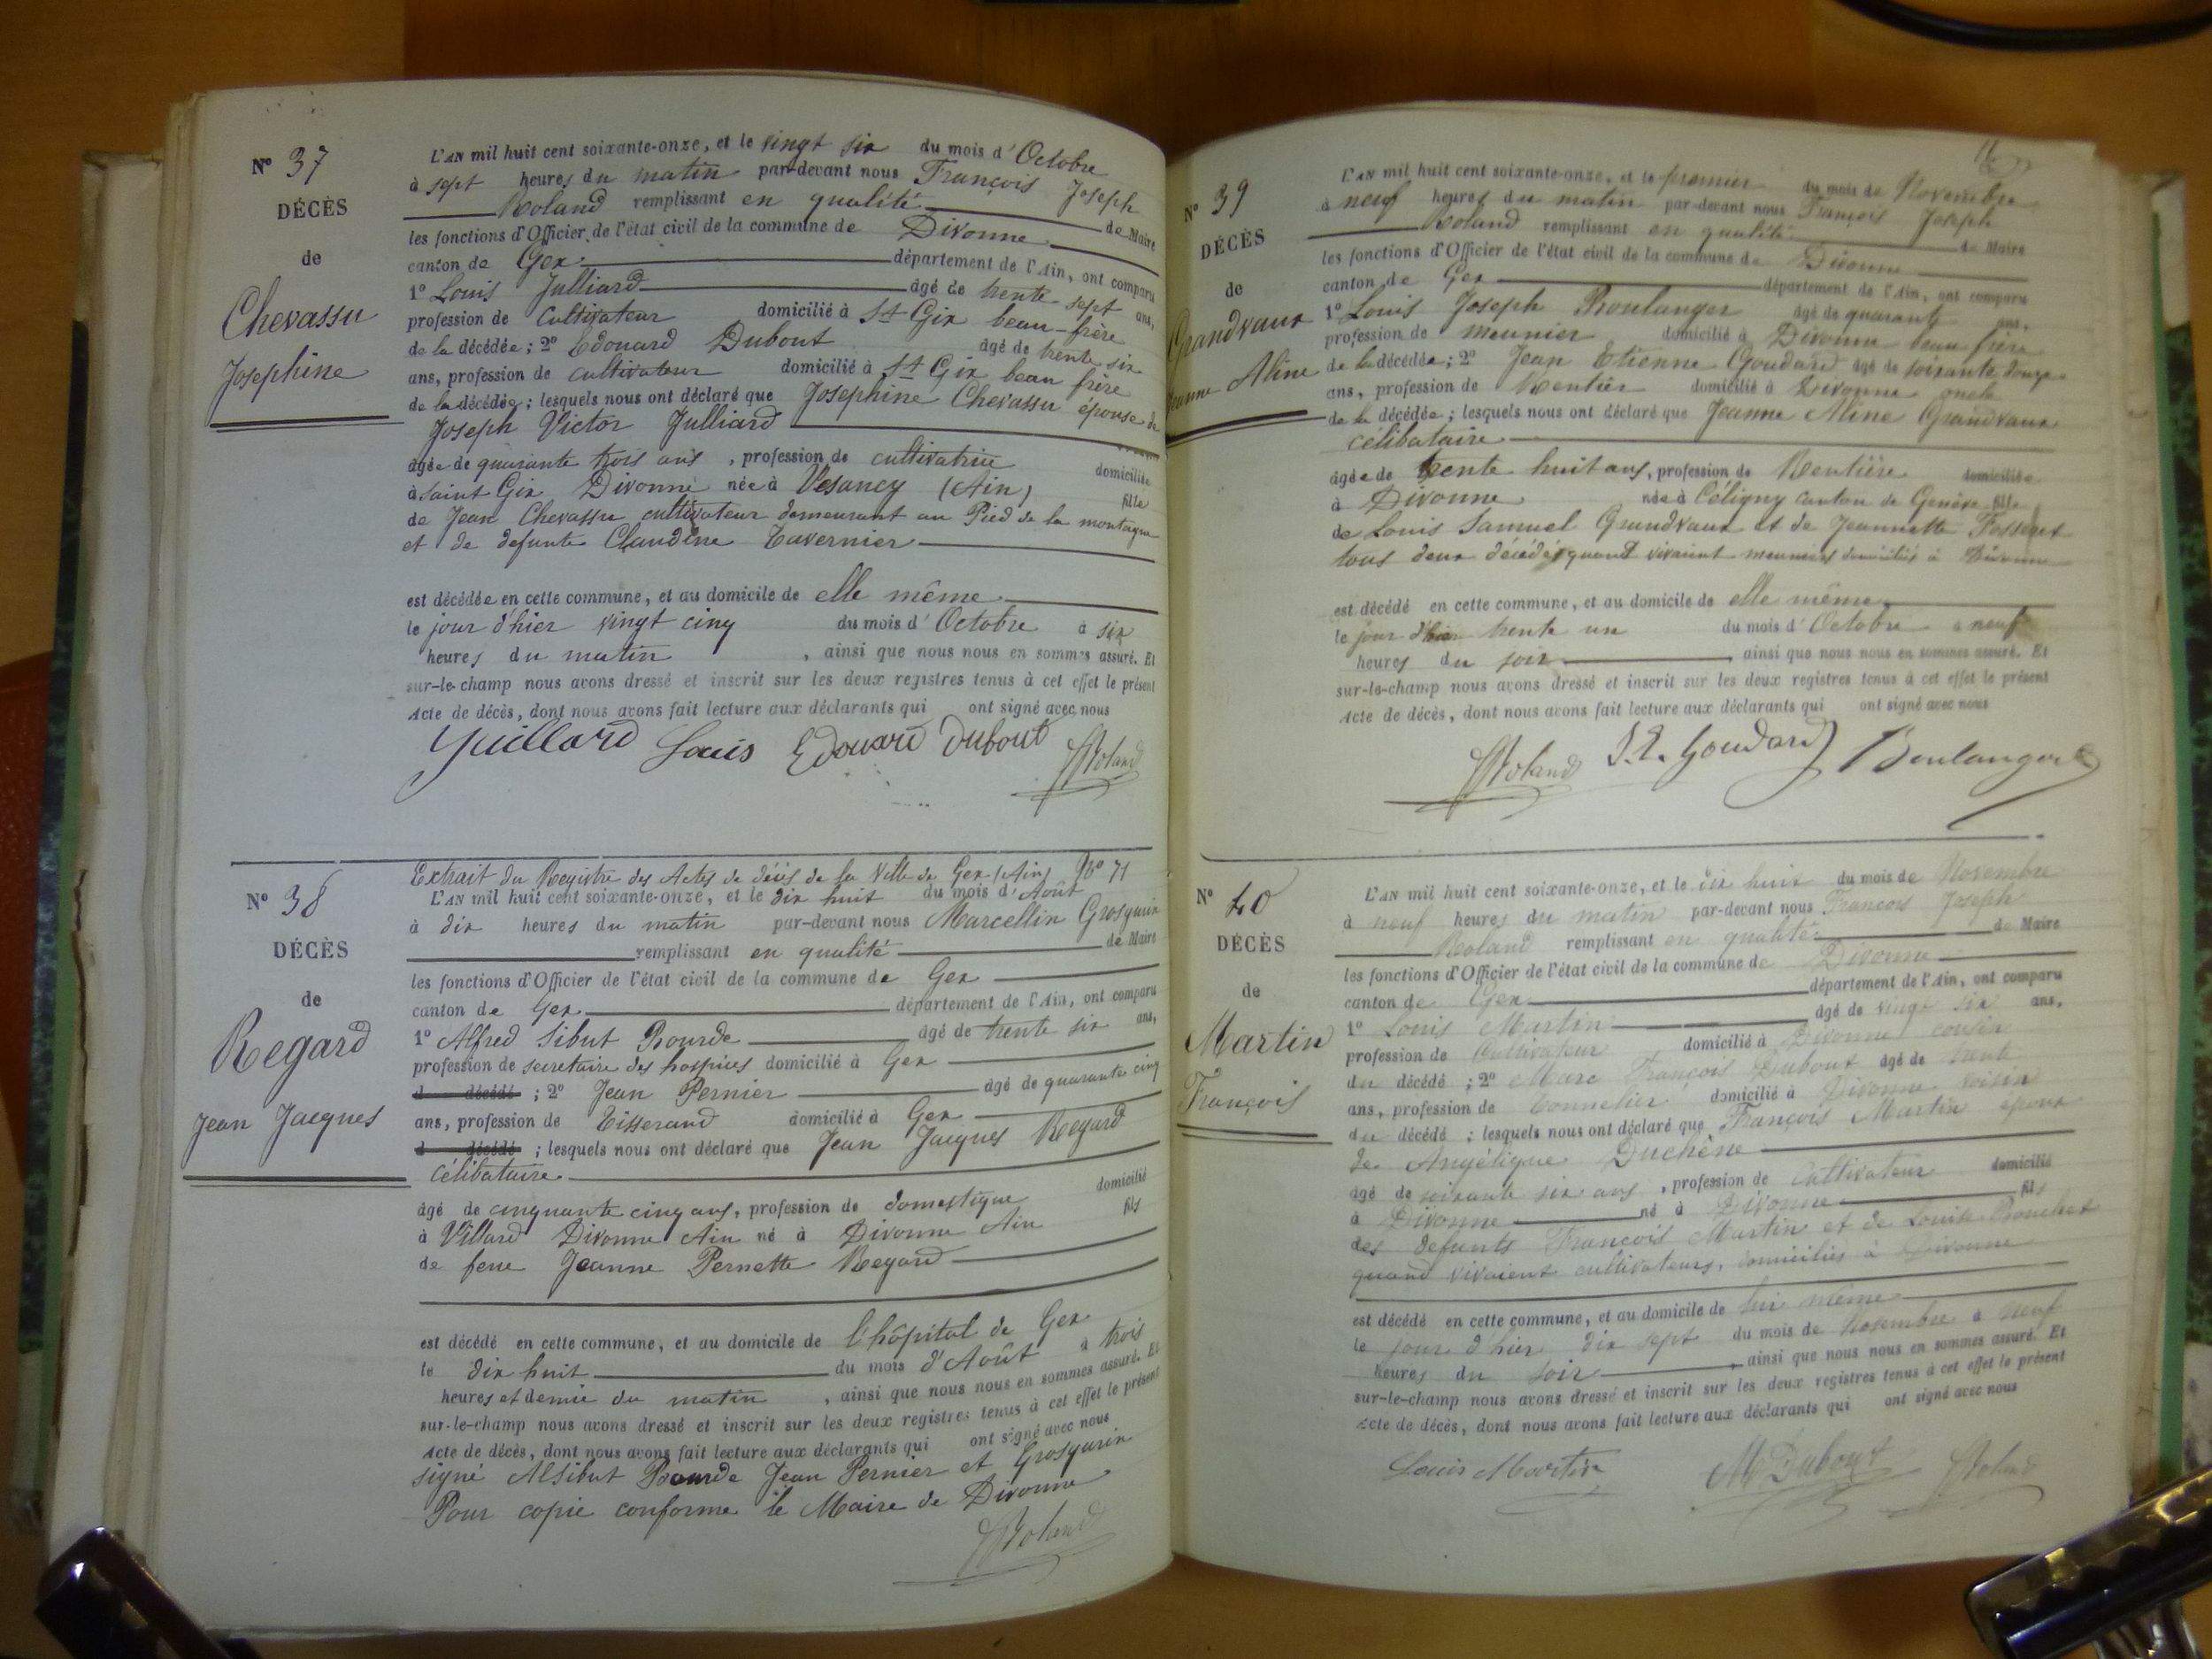 Nº 37
DÉCÈS
de
Chevassu
Josephine
L'AN mil huit cent soixante-onze, et le vingt six du mois d'Octobre
à sept heures du matin par-devant nous François Joseph
Roland remplissant en qualité de Maire
les fonctions d'Officier de l'état civil de la commune de Divonne
canton de Gex département de l'Ain, ont comparu
1º Louis Julliard âgé de trente sept ans,
profession de Cultivateur domicilié à St Gix beau-frère
de la décédée; 2º Edouard Dubout âgé de trente six
ans, profession de cultivateur domicilié à St Gix beau frère
de la décédée; lesquels nous ont déclaré que Josephine Chevassu épouse de
Joseph Victor Julliard
âgée de quarante trois ans, profession de cultivatrice domiciliée
à Saint Gix Divonne née à Vesancy (Ain) fille
de Jean Chevassu cultivateur demeurant au Pied de la montagne
et de defunte Claudine Tavernier
est décédée en cette commune, et au domicile de elle même
le jour d'hier vingt cinq du mois d'Octobre à six
heures du matin, ainsi que nous nous en sommes assuré. Et
sur-le-champ nous avons dressé et inscrit sur les deux registres tenus à cet effet le présent
Acte de décès, dont nous avons fait lecture aux déclarants qui ont signé avec nous
Juillard Louis Edouard Dubout Roland
Nº 38
DÉCÈS
de
Regard
Jean Jacques
Extrait du Registre des Actes de décès de la Ville de Gex (Ain) Nº 71
L'AN mil huit cent soixante-onze, et le dix huit du mois d'Août
à dix heures du matin par-devant nous Marcellin Grosgurin
remplissant en qualité de Maire
les fonctions d'Officier de l'état civil de la commune de Gex
canton de Gex département de l'Ain, ont comparu
1º Alfred Sibut Bourde âgé de trente six ans,
profession de secretaire des hospices domicilié à Gex
d décédé; 2º Jean Pernier âgé de quarante cinq
ans, profession de Tisserand domicilié à Gex
d décédé; lesquels nous ont déclaré que Jean Jacques Regard
célibataire
âgé de cinquante cinq ans, profession de domestique domicilié
à Villard Divonne Ain né à Divonne Ain fils
de feue Jeanne Pernette Regard
est décédé en cette commune, et au domicile de l'hôpital de Gex
le dix huit du mois d'Août à trois
heures et demie du matin, ainsi que nous nous en sommes assuré. Et
sur-le-champ nous avons dressé et inscrit sur les deux registres tenus à cet effet le présent
Acte de décès, dont nous avons fait lecture aux déclarants qui ont signé avec nous
signé Al Sibut Bourde Jean Pernier et Grosgurin
Pour copie conforme le Maire de Divonne
Roland
Nº 39
DÉCÈS
de
Grandvaux
Jeanne Aline
L'AN mil huit cent soixante-onze, et le premier du mois de Novembre
à neuf heures du matin par-devant nous François Joseph
Roland remplissant en qualité de Maire
les fonctions d'Officier de l'état civil de la commune de Divonne
canton de Gex département de l'Ain, ont comparu
1º Louis Joseph Boulanger âgé de quarante ans,
profession de meunier domicilié à Divonne beau frère
de la décédée; 2º Jean Etienne Goudard âgé de soixante douze
ans, profession de Rentier domicilié à Divonne oncle
de la décédée; lesquels nous ont déclaré que Jeanne Aline Grandvaux
célibataire
âgée de trente huit ans, profession de Rentière domiciliée
à Divonne née à Céligny canton de Genève fille
de Louis Samuel Grandvaux et de Jeannette Fosseret
tous deux décédés quand vivaient meuniers domiciliés à Divonne
est décédé en cette commune, et au domicile de elle même
le jour d'hier trente un du mois d'Octobre à neuf
heures du soir ainsi que nous nous en sommes assuré. Et
sur-le-champ nous avons dressé et inscrit sur les deux registres tenus à cet effet le présent
Acte de décès, dont nous avons fait lecture aux déclarants qui ont signé avec nous
Roland J. E. Goudard Boulanger
Nº 40
DÉCÈS
de
Martin
François
L'AN mil huit cent soixante-onze, et le dix huit du mois de Novembre
à neuf heures du matin par-devant nous François Joseph
Roland remplissant en qualité de Maire
les fonctions d'Officier de l'état civil de la commune de Divonne
canton de Gex département de l'Ain, ont comparu
1º Louis Martin âgé de vingt six ans,
profession de Cultivateur domicilié à Divonne cousin
du décédé; 2º Marc François Dubout âgé de trente
ans, profession de Tonnelier domicilié à Divonne voisin
du décédé; lesquels nous ont déclaré que François Martin époux
de Angélique Duchêne
âgé de soixante six ans, profession de Cultivateur domicilié
à Divonne né à Divonne fils
des defunts François Martin et de Louise Bouchet
quand vivaient cultivateurs, domiciliés à Divonne
est décédé en cette commune, et au domicile de lui même
le jour d'hier dix sept du mois de Novembre à neuf
heures du soir, ainsi que nous nous en sommes assuré. Et
sur-le-champ nous avons dressé et inscrit sur les deux registres tenus à cet effet le présent
Acte de décès, dont nous avons fait lecture aux déclarants qui ont signé avec nous
Louis Martin M Dubout Roland